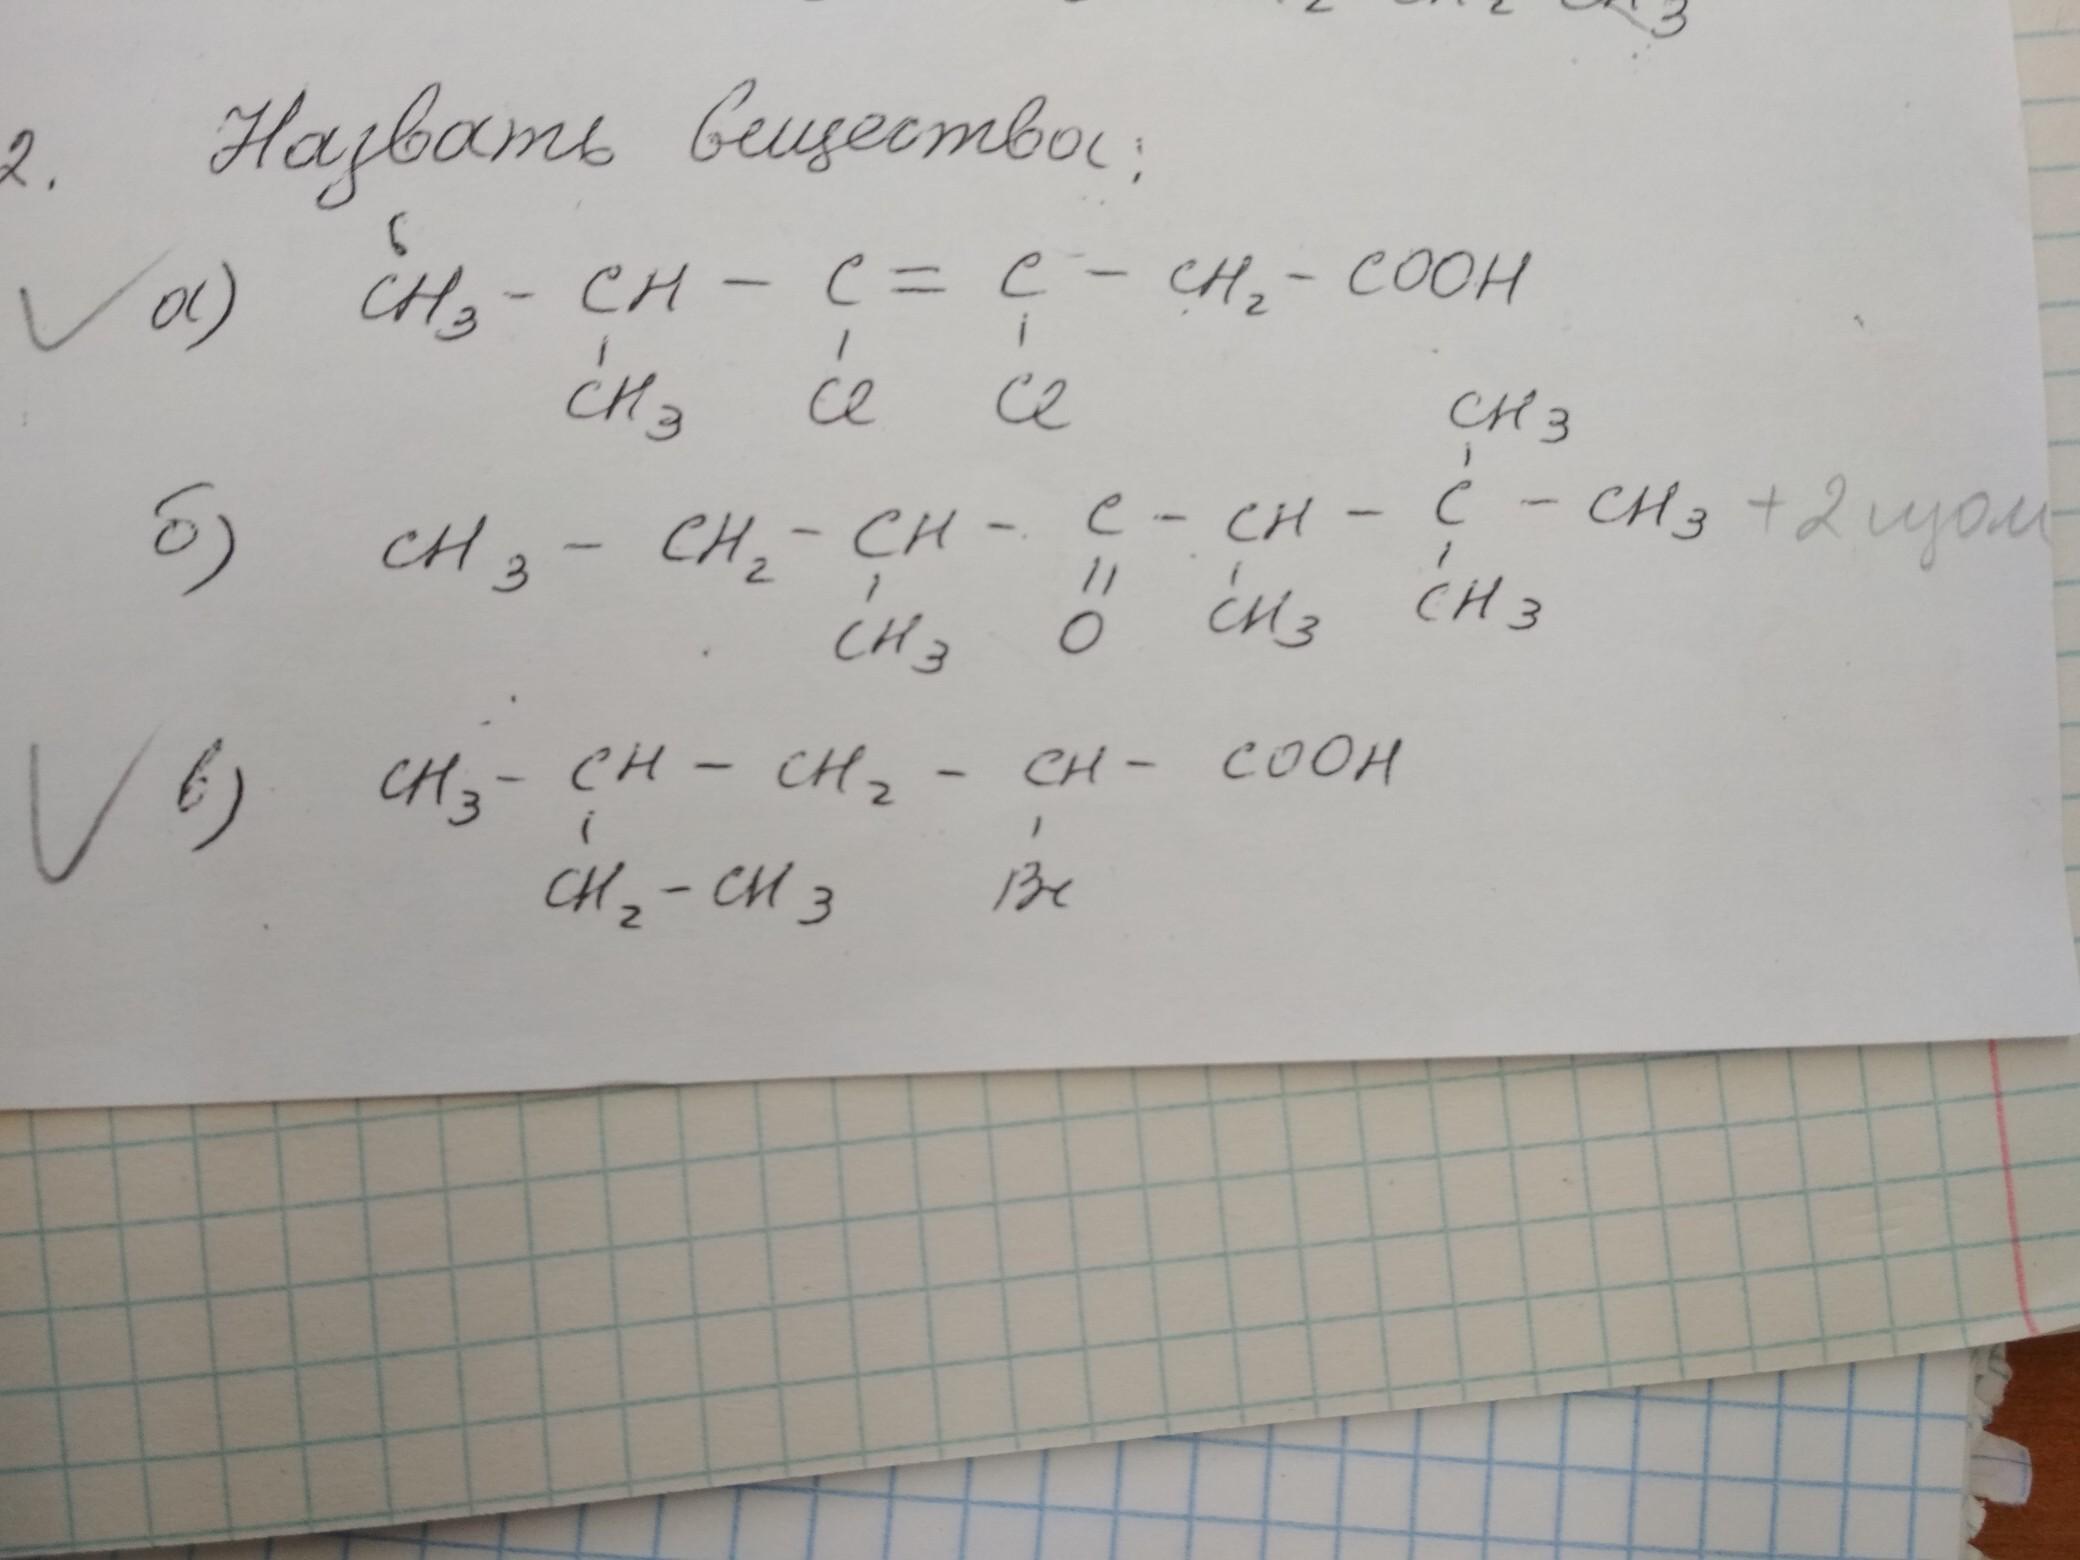 2. Назвать вещества:
6
а) CH3 - CH - C = C - CH2 - COOH
CH3 Cl Cl
CH3
б) CH3 - CH2 - CH - C - CH - C - CH3 + 2 изом
CH3 O CH3 CH3
в) CH3 - CH - CH2 - CH - COOH
CH2 - CH3 Br